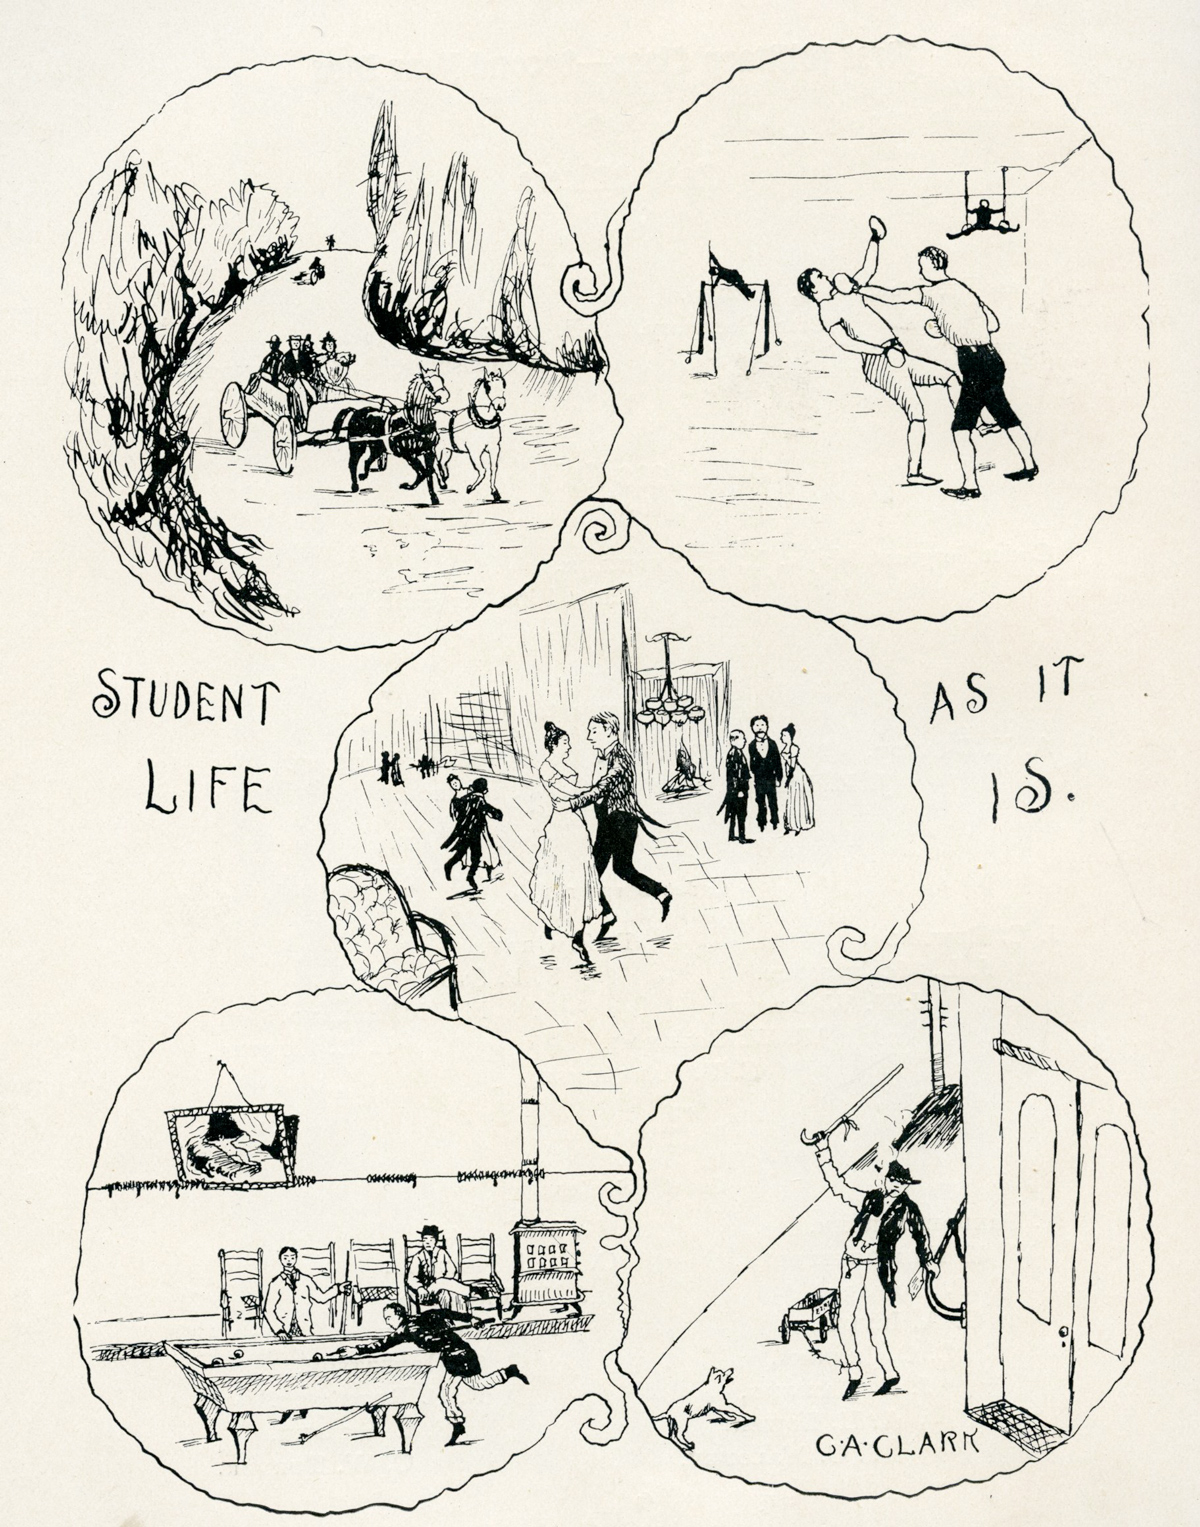 STUDENT
LIFE
AS IT
IS.
C·A·CLARK